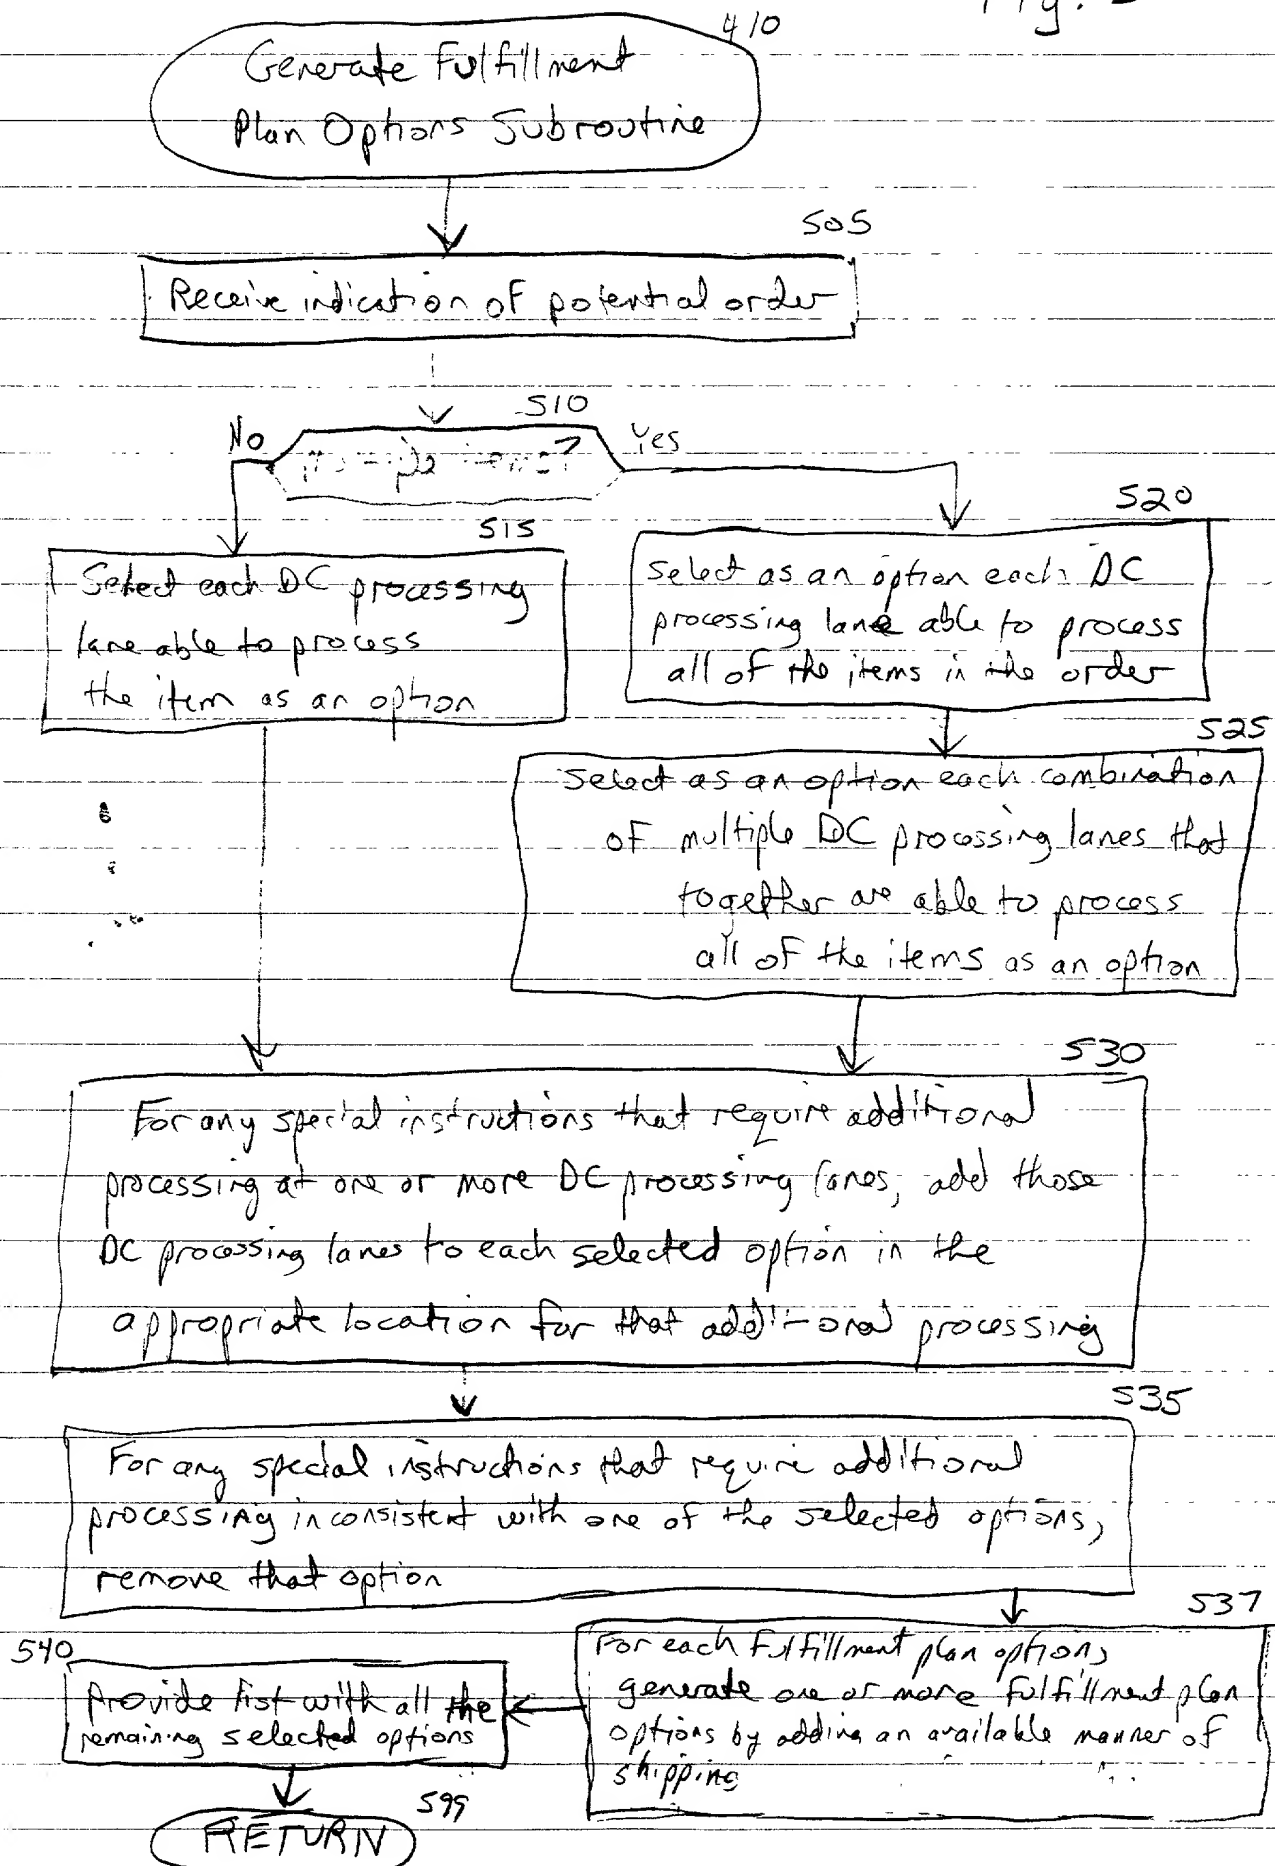 Fig.
410
Generate Fulfillment
Plan Options Subroutine
505
Receive indication of potential order
510
No
Yes
515
Select each DC processing
lane able to process
the item as an option
520
Select as an option each DC
processing lane able to process
all of the items in the order
525
Select as an option each combination
of multiple DC processing lanes that
together are able to process
all of the items as an option
530
For any special instructions that require additional
processing at one or more DC processing lanes, add those
DC processing lanes to each selected option in the
appropriate location for that additional processing
535
For any special instructions that require additional
processing inconsistent with one of the selected options,
remove that option
537
For each fulfillment plan options,
generate one or more fulfillment plan
options by adding an available manner of
shipping
540
Provide list with all the
remaining selected options
599
RETURN